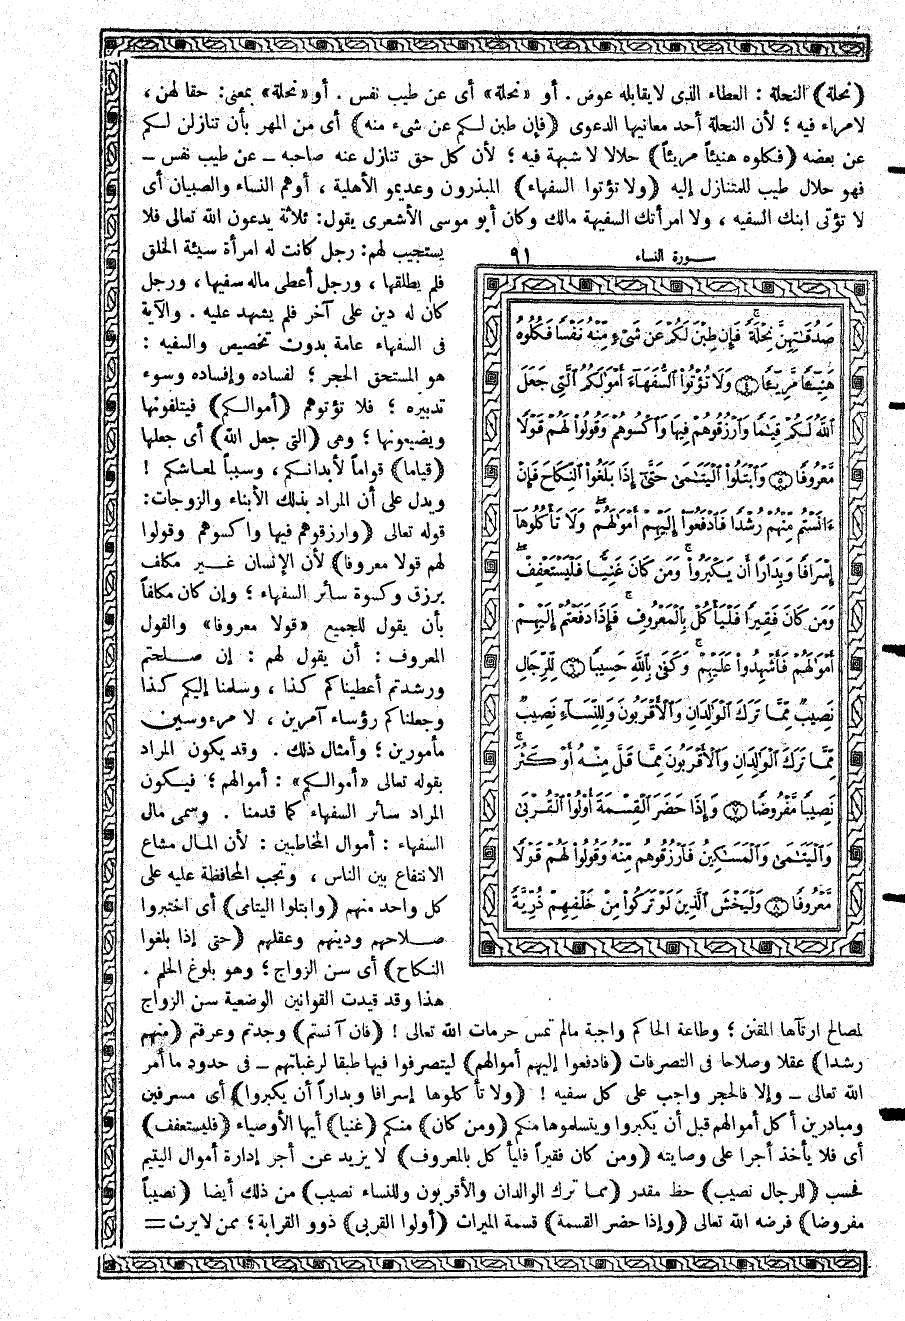 (نحلة) النحلة : العطاء الذى لا يقابله عوض . أو «نحلة» أى عن طيب نفس . أو «نحلة» بمعنى: حقا لهن ،
لامراء فيه ؛ لأن النحلة أحد معانيها الدعوى (فإن طبن لكم عن شىء منه) أى من المهر بأن تنازلن لكم
عن بعضه (فكلوه هنيئاً مريئاً) حلالا لا شبهة فيه ؛ لأن كل حق تنازل عنه صاحبه ــ عن طيب نفس ــ
فهو حلال طيب للمتنازل إليه (ولا تؤتوا السفهاء) المبذرون وعديمو الأهلية ، أوهم النساء والصبيان أى
لا تؤتى ابنك السفيه ، ولا امرأتك السفيهة مالك وكان أبو موسى الأشعرى يقول: ثلاثة يدعون الله تعالى فلا
يستجيب لهم: رجل كانت له امرأة سيئة الخلق
فلم يطلقها ، ورجل أعطى ماله سفيها ، ورجل
كان له دين على آخر فلم يشهد عليه . والآية
فى السفهاء عامة بدون تخصيص والسفيه :
هو المستحق الحجر ؛ لفساده وإفساده وسوء
تدبيره ؛ فلا تؤتوهم (أموالكم) فيتلفونها
ويضيعونها ؛ وهى (التى جعل الله) أى جعلها
(قياما) قواماً لأبدانكم ، وسبباً لمعاشكم !
ويدل على أن المراد بذلك الأبناء والزوجات:
قوله تعالى (وارزقوهم فيها واكسوهم وقولوا
لهم قولا معروفا) لأن الإنسان غير مكلف
برزق وكسوة سائر السفهاء ؛ وإن كان مكلفاً
بأن يقول للجميع «قولا معروفا» والقول
المعروف : أن يقول لهم : إن صلحتم
ورشدتم أعطيناكم كذا ، وسلمنا إليكم كذا
وجعلناكم رؤساء آمرين ، لا مرءوسين
مأمورين ؛ وأمثال ذلك . وقد يكون المراد
بقوله تعالى «أموالكم» : أموالهم ؛ فيكون
المراد سائر السفهاء كما قدمنا . وسمى مال
السفهاء : أموال المخاطبين : لأن المال مشاع
الانتفاع بين الناس ، وتجب المحافظة عليه على
كل واحد منهم (وابتلوا اليتامى) أى اختبروا
صلاحهم ودينهم وعقلهم (حتى إذا بلغوا
النكاح) أى سن الزواج ؛ وهو بلوغ الحلم .
هذا وقد قيدت القوانين الوضعية سن الزواج
سورة النساء ٩١
صَدُقَٰتِهِنَّ نِحْلَةً ۚ فَإِن طِبْنَ لَكُمْ عَن شَىْءٍ مِّنْهُ نَفْسًا فَكُلُوهُ
هَنِيٓـًٔا مَّرِيٓـًٔا ﴿٤﴾ وَلَا تُؤْتُوا۟ ٱلسُّفَهَآءَ أَمْوَٰلَكُمُ ٱلَّتِى جَعَلَ
ٱللَّهُ لَكُمْ قِيَٰمًا وَٱرْزُقُوهُمْ فِيهَا وَٱكْسُوهُمْ وَقُولُوا۟ لَهُمْ قَوْلًا
مَّعْرُوفًا ﴿٥﴾ وَٱبْتَلُوا۟ ٱلْيَتَٰمَىٰ حَتَّىٰٓ إِذَا بَلَغُوا۟ ٱلنِّكَاحَ فَإِنْ
ءَانَسْتُم مِّنْهُمْ رُشْدًا فَٱدْفَعُوٓا۟ إِلَيْهِمْ أَمْوَٰلَهُمْ ۖ وَلَا تَأْكُلُوهَآ
إِسْرَافًا وَبِدَارًا أَن يَكْبَرُوا۟ ۚ وَمَن كَانَ غَنِيًّا فَلْيَسْتَعْفِفْ ۖ
وَمَن كَانَ فَقِيرًا فَلْيَأْكُلْ بِٱلْمَعْرُوفِ ۚ فَإِذَا دَفَعْتُمْ إِلَيْهِمْ
أَمْوَٰلَهُمْ فَأَشْهِدُوا۟ عَلَيْهِمْ ۚ وَكَفَىٰ بِٱللَّهِ حَسِيبًا ﴿٦﴾ لِّلرِّجَالِ
نَصِيبٌ مِّمَّا تَرَكَ ٱلْوَٰلِدَانِ وَٱلْأَقْرَبُونَ وَلِلنِّسَآءِ نَصِيبٌ
مِّمَّا تَرَكَ ٱلْوَٰلِدَانِ وَٱلْأَقْرَبُونَ مِمَّا قَلَّ مِنْهُ أَوْ كَثُرَ ۚ
نَصِيبًا مَّفْرُوضًا ﴿٧﴾ وَإِذَا حَضَرَ ٱلْقِسْمَةَ أُو۟لُوا۟ ٱلْقُرْبَىٰ
وَٱلْيَتَٰمَىٰ وَٱلْمَسَٰكِينُ فَٱرْزُقُوهُم مِّنْهُ وَقُولُوا۟ لَهُمْ قَوْلًا
مَّعْرُوفًا ﴿٨﴾ وَلْيَخْشَ ٱلَّذِينَ لَوْ تَرَكُوا۟ مِنْ خَلْفِهِمْ ذُرِّيَّةً
لمصالح ارتآها المقنن ؛ وطاعة الحاكم واجبة مالم تمس حرمات الله تعالى ! (فان آنستم) وجدتم وعرفتم (منهم
رشدا) عقلا وصلاحا فى التصرفات (فادفعوا إليهم أموالهم) ليتصرفوا فيها طبقا لرغباتهم ــ فى حدود ما أمر
الله تعالى ــ وإلا فالحجر واجب على كل سفيه ! (ولا تأكلوها إسرافا وبداراً أن يكبروا) أى مسرفين
ومبادرين أكل أموالهم قبل أن يكبروا ويتسلموها منكم (ومن كان) منكم (غنيا) أيها الأوصياء (فليستعفف)
أى فلا يأخذ أجرا على وصايته (ومن كان فقيراً فليأكل بالمعروف) لا يزيد عن أجر إدارة أموال اليتيم
فحسب (للرجال نصيب) حظ مقدر (مما ترك الوالدان والأقربون وللنساء نصيب) من ذلك أيضا (نصيباً
مفروضا) فرضه الله تعالى (وإذا حضر القسمة) قسمة الميراث (أولوا القربى) ذوو القرابة ؛ ممن لا يرث =